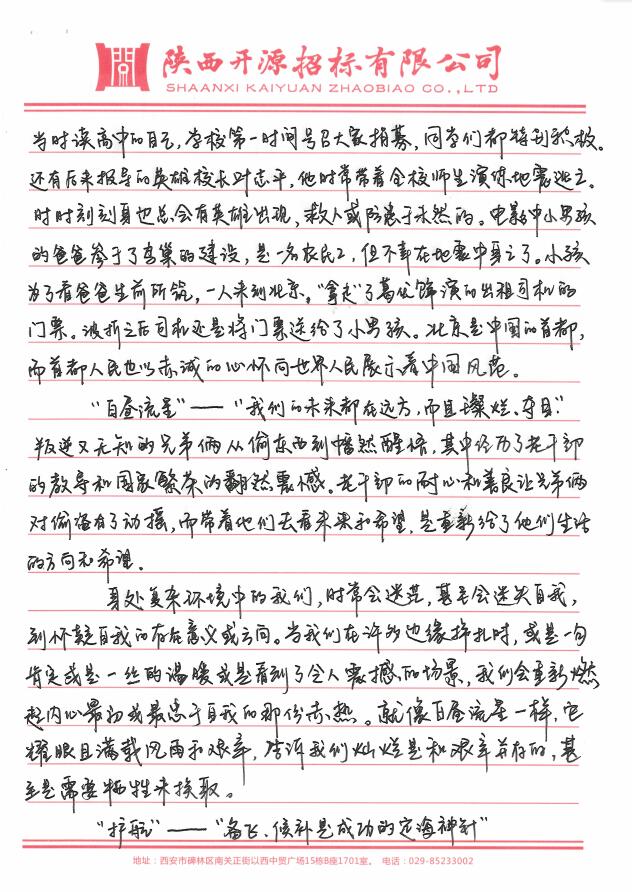 陕西开源招标有限公司
SHAANXI KAIYUAN ZHAOBIAO CO.,LTD
当时读高中的自己,学校第一时间号召大家捐募,同学们都特别积极。
还有后来报导的英雄校长叶志平,他时常带着全校师生演练地震逃亡。
时时刻刻身边总会有英雄出现,救人或防患于未然的。电影中小男孩
的爸爸参于了鸟巢的建设,是一名农民工,但不幸在地震中身亡了。小孩
为了看爸爸生前所筑,一人来到北京。“拿走”了葛优饰演的出租司机的
门票。波折之后司机还是将门票送给了小男孩。北京是中国的首都,
而首都人民也以赤诚的心怀向世界人民展示着中国风范。
“白昼流星”——“我们的未来都在远方,而且璀灿、夺目”
叛逆又无知的兄弟俩从偷东西到幡然醒悟,其中经历了老干部
的教导和国家繁荣的翻然震憾。老干部的耐心和善良让兄弟俩
对偷盗有了动摇,而带着他们去看未来和希望,是重新给了他们生活
的方向和希望。
身处复杂环境中的我们,时常会迷茫,甚至会迷失自我,
到怀疑自我的存在意义或方向。当我们在许多边缘挣扎时,或是一句
肯定或是一丝的温暖或是看到了令人震撼的场景,我们会重新燃
起内心最初或最忠于自我的那份赤热。就像白昼流星一样,它
耀眼且满载风雨和艰辛,告诉我们灿烂是和艰辛并存的,甚
至是需要牺牲来换取。
“护航”——“备飞、候补是成功的定海神针”
地址:西安市碑林区南关正街以西中贸广场15栋B座1701室。 电话:029-85233002